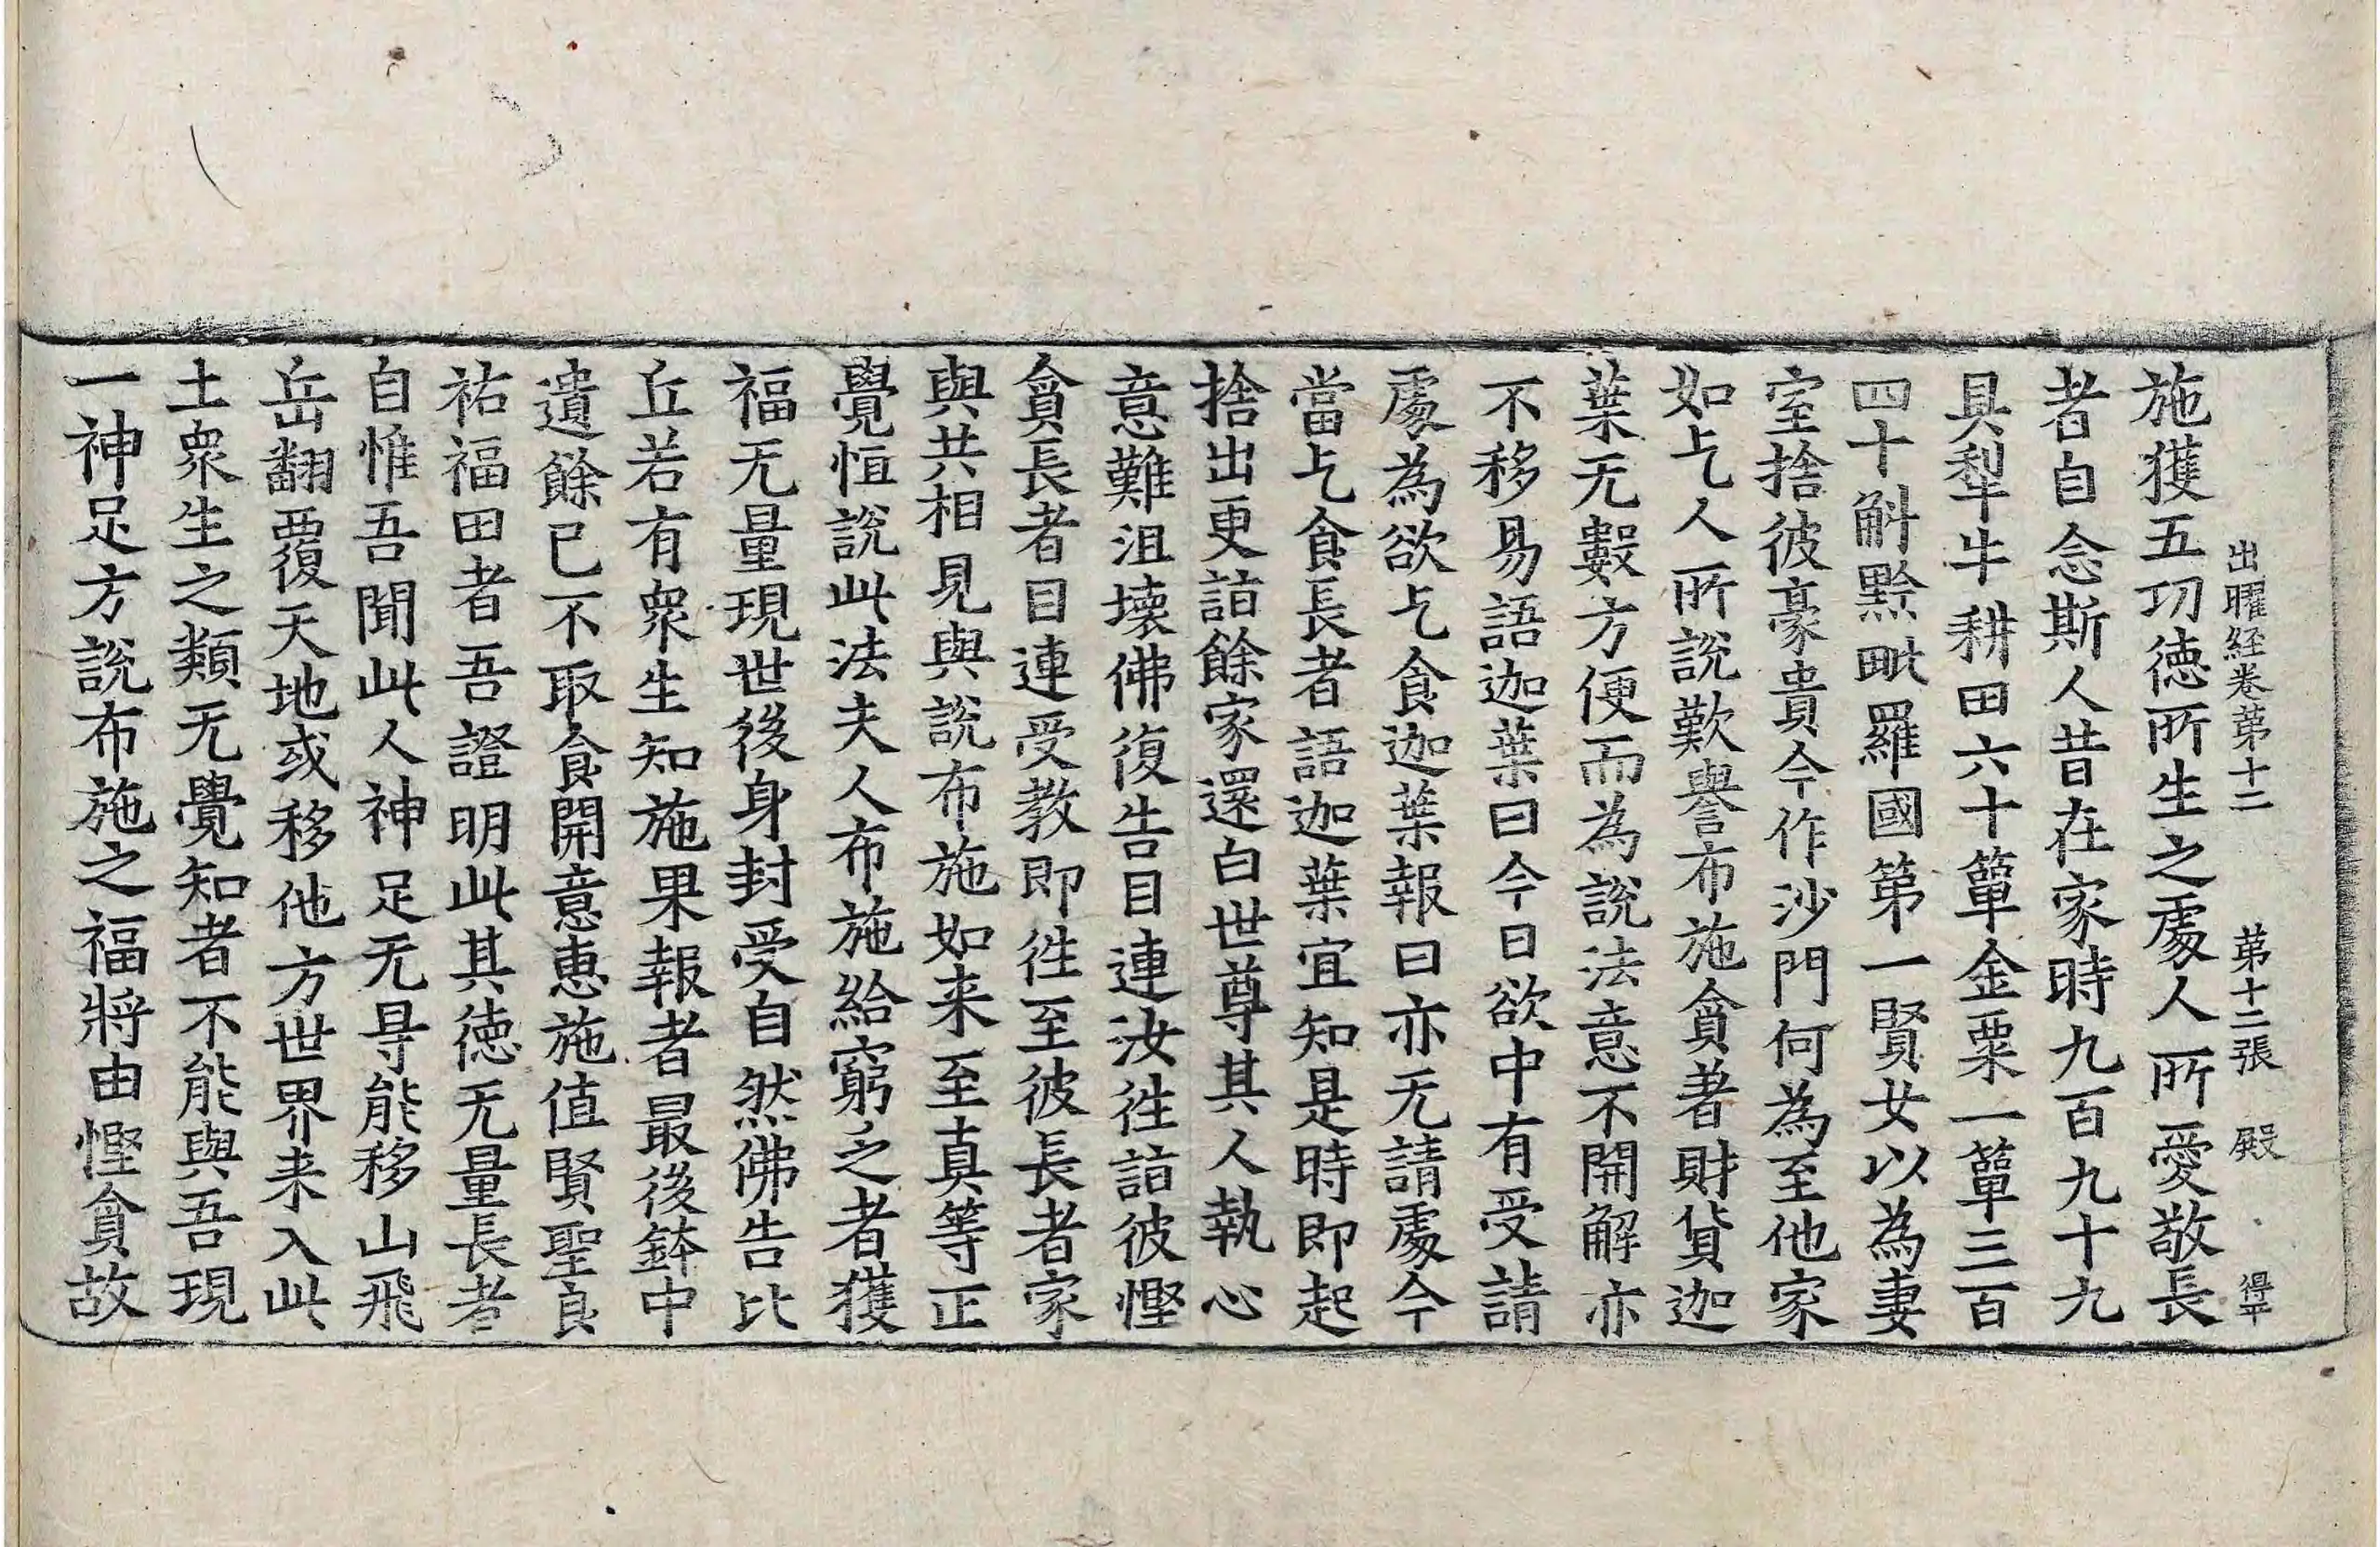 出曜経巻苐十二 苐十二張 殿 得平
施獲五功徳所生之處人所愛敬長
者自念斯人昔在家時九百九十九
具犁牛耕田六十簞金粟一簞三百
四十斛黙毗羅國第一賢女以為妻
室捨彼豪貴今作沙門何為至他家
如乞人所説歎譽布施貪者財貨迦
葉无數方便而為説法意不開解亦
不移易語迦葉曰今日欲中有受請
處為欲乞食迦葉報曰亦无請處今
當乞食長者語迦葉宜知是時即起
捨出更詣餘家還白世尊其人執心
意難沮壊佛復告目連汝徃詣彼慳
貪長者目連受教即徃至彼長者家
與共相見與説布施如来至真等正
覺恒説此法夫人布施給窮乏者獲
福无量現世後身封受自然佛告比
丘若有衆生知施果報者最後鉢中
遺餘已不取食開意恵施值賢聖良
祐福田者吾證明此其徳无量長者
自惟吾聞此人神足无㝵能移山飛
岳翻覆天地或移他方世界来入此
土衆生之類无覺知者不能與吾現
一神足方説布施之福將由慳貪故